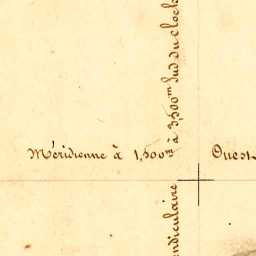 Méridienne à 1,500m Ouest
endiculaire à 3,500m Sud du Cloch